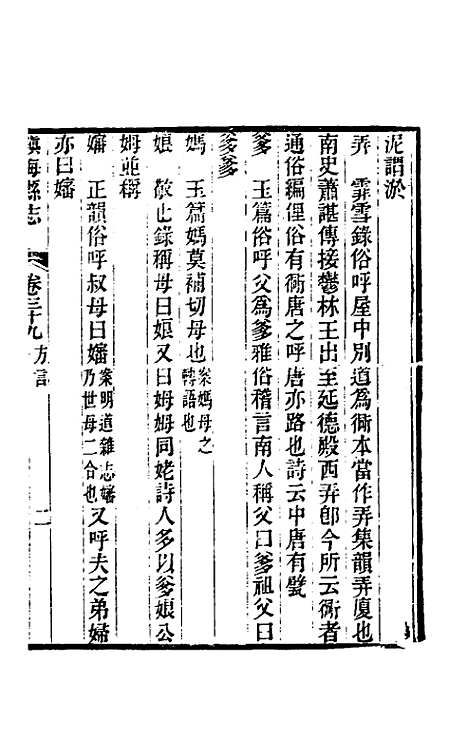 泥謂淤
弄　霏雪錄俗呼屋中別道為衖本當作弄集韻弄廈也
南史蕭諶傳接鬱林王出至延德殿西弄卽今所云衖者
通俗編俚俗有衖唐之呼唐亦路也詩云中唐有甓
爹　玉篇俗呼父為爹雅俗稽言南人稱父曰爹祖父曰
爹爹
媽　玉篇媽莫補切母也案媽母之轉語也
娘　敬止錄稱母曰娘又曰姆姆同姥詩人多以爹娘公
姆並稱
嬸　正韻俗呼叔母曰嬸案明道雜志嬸乃世母二合也又呼夫之弟婦
亦曰嬸
鎮海縣志　卷三十九　方言　二